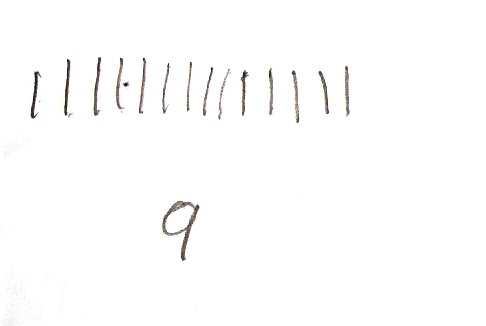 ||||||||||||||
9